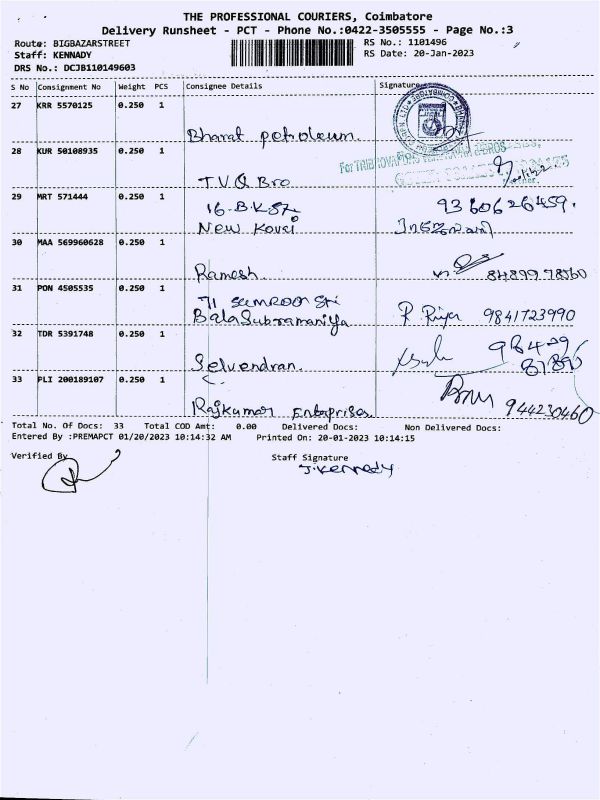 THE PROFESSIONAL COURIERS, Coimbatore
Delivery Runsheet - PCT - Phone No.:0422-3505555 - Page No.:3
Route: BIGBAZARSTREET RS No.: 1101496
Staff: KENNADY RS Date: 20-Jan-2023
DRS No.: DCJB110149603
S No Consignment No Weight PCS Consignee Details Signature
27 KRR 5570125 0.250 1
Bharat petroleum.
28 KUR 50108935 0.250 1
T V Q Bro
29 MRT 571444 0.250 1
16-B.K.St 9360626459.
New Kovai
30 MAA 569960628 0.250 1
Ramesh 84899 78560
31 PON 4505535 0.250 1
71 Sumroon Stri
BalaSubramaniya P. Riya 9841723990
32 TDR 5391748 0.250 1
Selvendran. 98429
81890
33 PLI 200189107 0.250 1
Rajkumar Enterprises. 944230460
Total No. Of Docs: 33 Total COD Amt: 0.00 Delivered Docs: Non Delivered Docs:
Entered By :PREMAPCT 01/20/2023 10:14:32 AM Printed On: 20-01-2023 10:14:15
Verified By Staff Signature
J.Kennedy